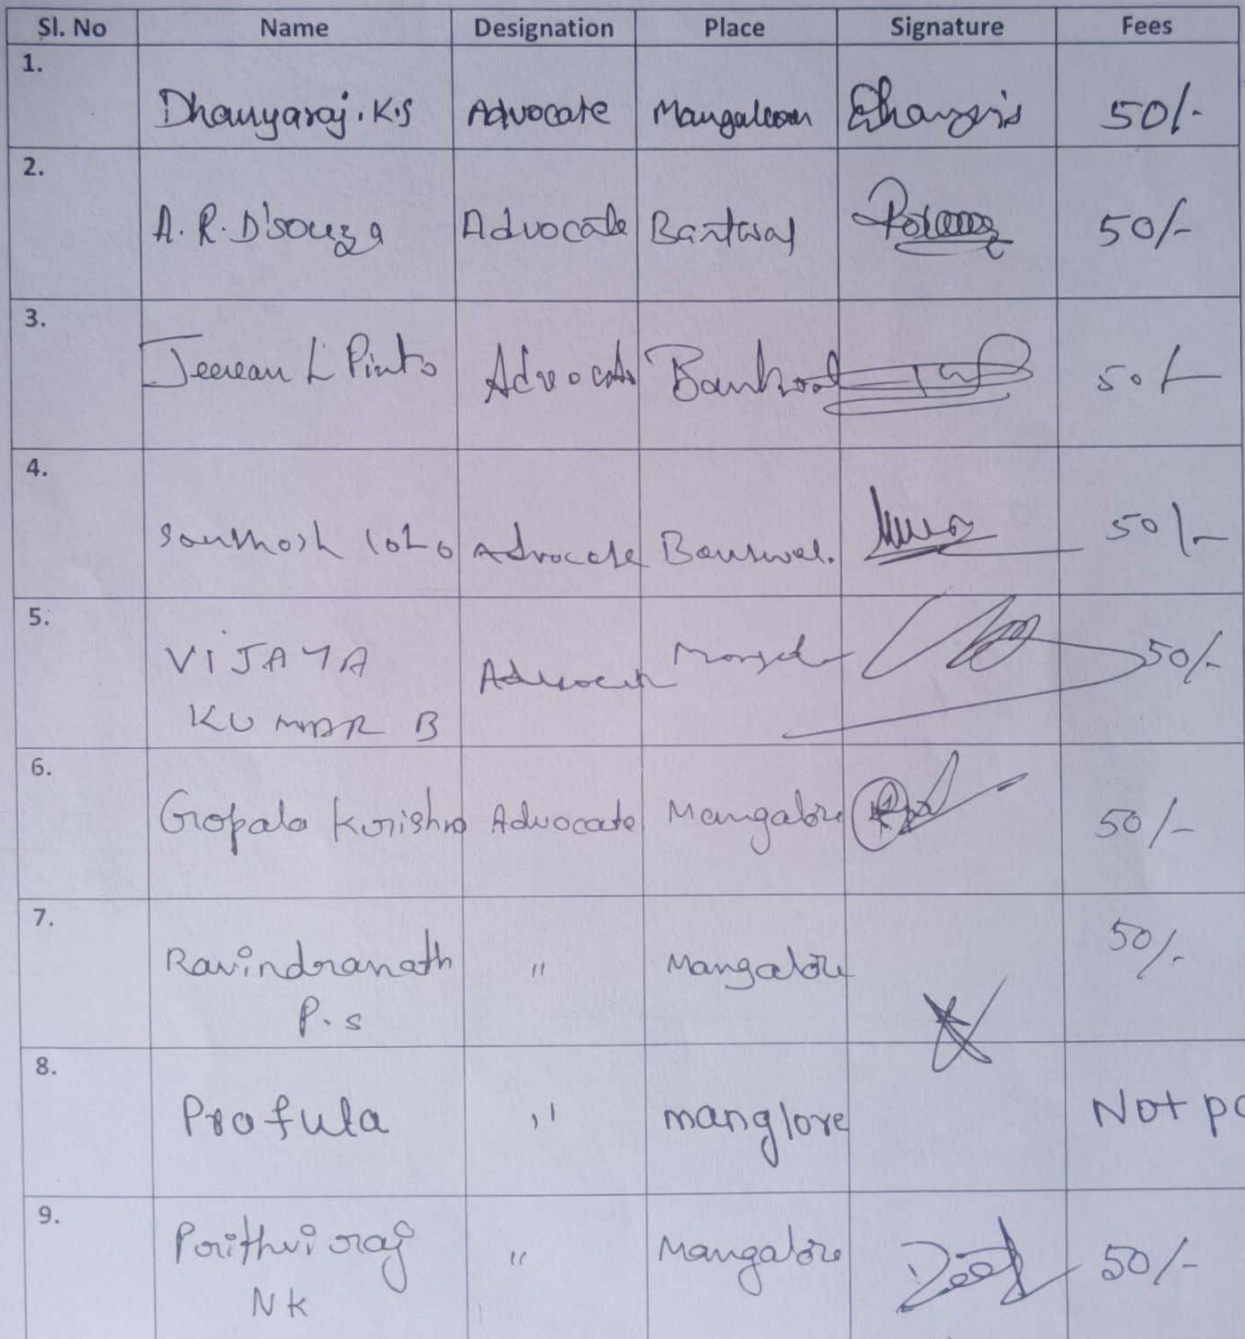 Sl. No Name Designation Place Signature Fees
1. Dhanyaraj.K.S Advocate 50/-
2. A. R. D'souza Advocate Bantwal 50/-
3. L Pinto Advocate 50/-
4. Santhosh Lobo Advocate Bantwal. 50/-
5. VIJAYA Advocate 50/-
KUMAR B
6. Gopala Krishna Advocate Mangalore 50/-
7. Ravindranath " Mangalore 50/-
P.s
8. Prafula " manglore Not
9. Prithvi raj " Mangalore 50/-
NK